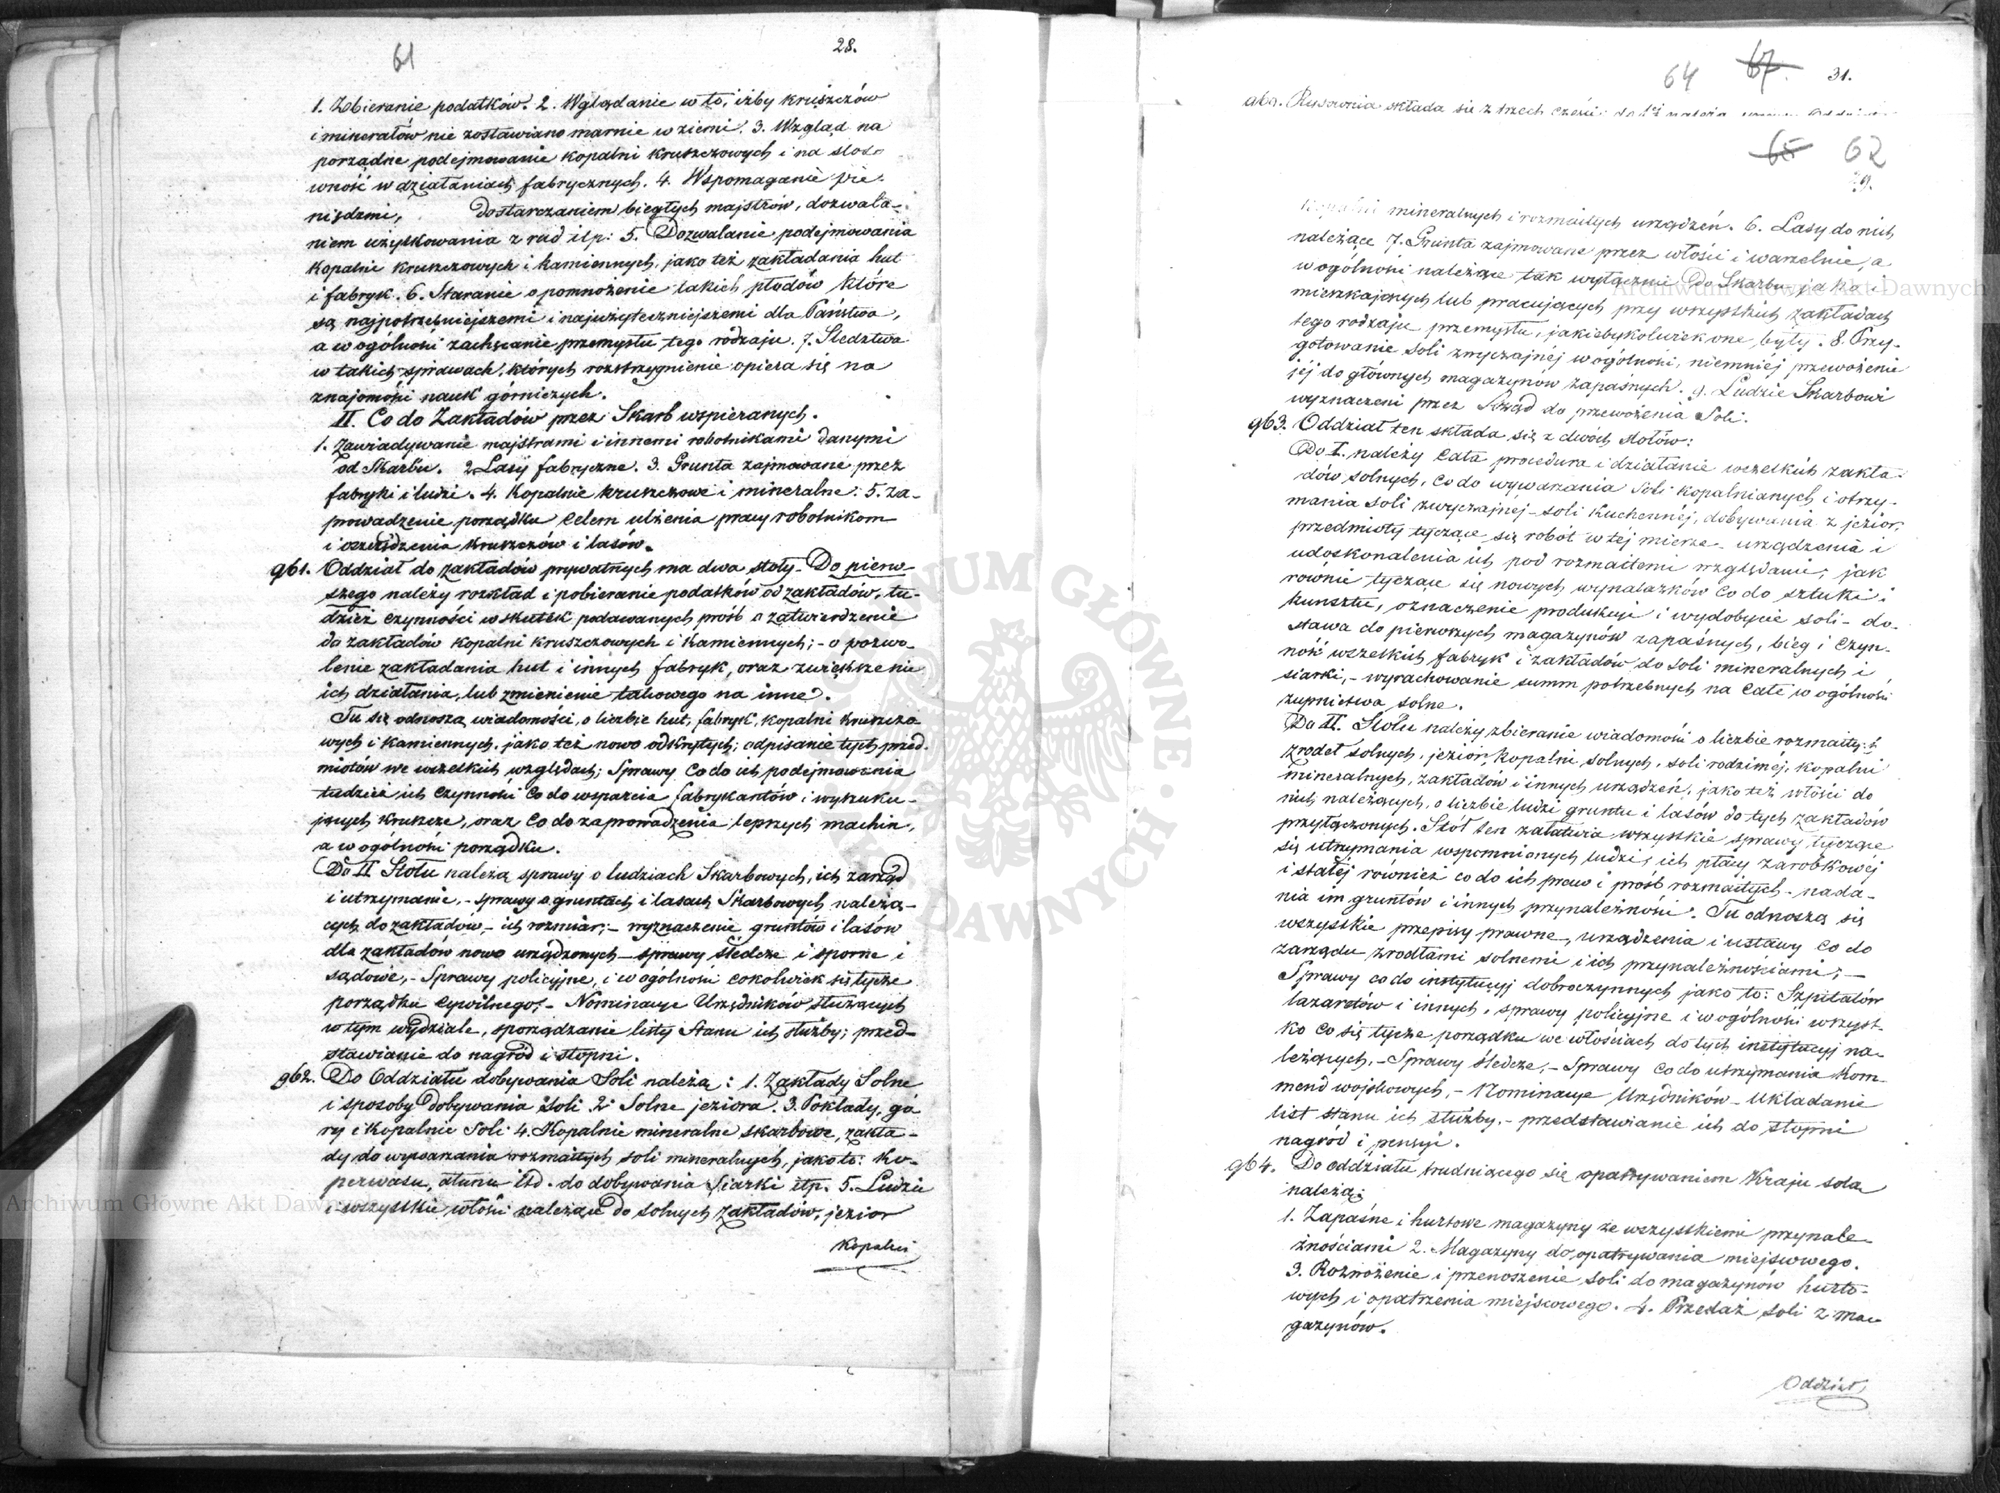 61
28.
1. Zebieranie podatków. 2. Wglądanie w to, iżby kruszczów
i minerałów nie zostawiano marnie w ziemi. 3. Wzgląd na
porządne podejmowanie kopalni kruszczowych i na stoso
wność w działaniach fabrycznych. 4. Wspomaganie pie-
niędzmi, dostarczaniem biegłych majstrów, dozwala-
niem użytkowania z rud itp: 5. Dozwalanie podejmowania
kopalni kruszczowych i kamiennych, jako też zakładania hut
i fabryk. 6. Staranie o pomnożenie takich płodów które
są najpotrzebniejszemi i najużyteczniejszemi dla Państwa,
a w ogólności zachęcanie przemysłu tego rodzaju. 7. Śledztwa
w takich sprawach, których rozstrzygnienie opiera się na
znajomości nauk górniczych.
II. Co do Zakładów przez Skarb wspieranych.
1. Zawiadywanie majstrami i innemi robotnikami danymi
od Skarbu. 2 Lasy fabryczne. 3. Grunta zajmowane przez
fabryki i ludzi. 4. Kopalnie kruszczowe i mineralne. 5. Za-
prowadzenie porządku celem ulżenia pracy robotnikom
i oszczędzenia kruszczów i lasów.
961. Oddział do zakładów prywatnych ma dwa stoły. Do pierw
szego należy rozkład i pobieranie podatków od zakładów, tu-
dzież czynności w skutek podawanych próśb o zatwierdzenie
do zakładów kopalni kruszczowych i kamiennych; - o pozwo-
lenie zakładania hut i innych fabryk, oraz zwiększenie
ich działania, lub zmienienie takowego na inne.
Tu się odnoszą wiadomości, o liczbie hut, fabryk, kopalni kruszczo
wych i kamiennych, jako też nowo odkrytych; odpisanie tych przed-
miotów we wszelkich względach; Sprawy co do ich podejmowania
tudzież ich czynności co do wsparcia fabrykantów i wyszuku-
jących kruszcze, oraz co do zaprowadzenia lepszych machin,
a w ogólności porządku.
Do II Stołu należą sprawy o ludziach Skarbowych, ich zarząd
i utrzymanie, - sprawy o gruntach i lasach Skarbowych należą-
cych do zakładów, - ich rozmiar; - wyznaczenie gruntów i lasów
dla zakładów nowo urządzonych - sprawy śledcze i sporne i
sądowe, - Sprawy policyjne, i w ogólności cokolwiek się tycze
porządku cywilnego, - Nominacye Urzędników służących
w tym wydziale, sporządzanie listy Stanu ich służby; przed-
stawianie do nagród i stopni.
962. Do Oddziału dobywania Soli należą: 1. Zakłady Solne
i sposoby dobywania Soli 2. Solne jeziora. 3. Pokłady, gó
ry i Kopalnie Soli 4. Kopalnie mineralne skarbowe, zakła-
dy do wywarzania rozmaitych soli mineralnych, jako to: ko-
perwasu, ałunu itd. do dobywania siarki itp. 5. Ludzie
i wszystkie włości należące do solnych zakładów, jezior
Kopalni
64 67. 31.
Rysownia składa się z trzech części: do 1ej należą
65 62
29.
Kopalni mineralnych i rozmaitych urządzeń. 6. Lasy do nich
należące 7. Grunta zajmowane przez włości i warzelnie, a
w ogólności należące tak wyłącznie do Skarbu jako i
mieszkających lub pracujących przy wszystkich zakładach
tego rodzaju przemysłu, jakiebykolwiek one były. 8. Przy-
gotowanie Soli zwyczajnej w ogólności, niemniej przewożenie
jej do głównych magazynów zapasnych. 9. Ludzie Skarbowi
wyznaczeni przez Rząd do przewożenia Soli.
963. Oddział ten składa się z dwóch stołów:
Do I. należy cała procedura i działanie wszelkich zakła-
dów solnych, co do wywarzania soli kopalnianych i otrzy-
mania soli zwyczajnej - soli kuchennej, dobywania z jezior;
przedmioty tyczące się robót w tej mierze - urządzenia i
udoskonalenia ich pod rozmaitemi względami; jak
równie tyczące się nowych wynalazków co do sztuki i
kunsztu, oznaczenie produkcyi i wydobycie soli - do-
stawa do pierwszych magazynów zapaśnych, bieg i czyn-
ność wszelkich fabryk i zakładów do soli mineralnych i
siarki, - wyrachowanie summ potrzebnych na całe w ogólności
żupnictwa solne.
Do II. Stołu należy zbieranie wiadomości o liczbie rozmaitych
źródeł solnych, jezior, kopalni solnych, soli rodzimej, kopalni
mineralnych, zakładów i innych urządzeń, jako też włości do
nich należących, o liczbie ludzi gruntu i lasów do tych zakładów
przyłączonych. Stół ten załatwia wszystkie sprawy tyczące
się utrzymania wspomnionych ludzi, ich płacy zarobkowej
i stałej również co do ich praw i próśb rozmaitych - nada-
nia im gruntów i innych przynależności. Tu odnoszą się
wszystkie przepisy prawne, urządzenia i ustawy co do
zarządu źródłami solnemi i ich przynależnościami; -
Sprawy co do instytucyj dobroczynnych jako to: Szpitalów
lazaretów i innych, sprawy policyjne i w ogólności wszyst-
ko co się tycze porządku we włościach do tych instytucyj na-
leżących, - Sprawy śledcze, - Sprawy co do utrzymania Kom-
mend wojskowych, - Nominacye Urzędników - Układanie
list stanu ich służby, - przedstawianie ich do stopni
nagród i pensyi.
964. Do oddziału trudniącego się opatrywaniem Kraju solą
należą:
1. Zapaśne i hurtowe magazyny ze wszystkiemi przynale-
żnościami 2. Magazyny do opatrywania miejscowego.
3. Rozwożenie i przenoszenie soli do magazynów hurto-
wych i opatrzenia miejscowego. 4. Przedaż soli z ma-
gazynów.
Oddział
Archiwum Główne Akt Dawnych
Archiwum Główne Akt Dawnych